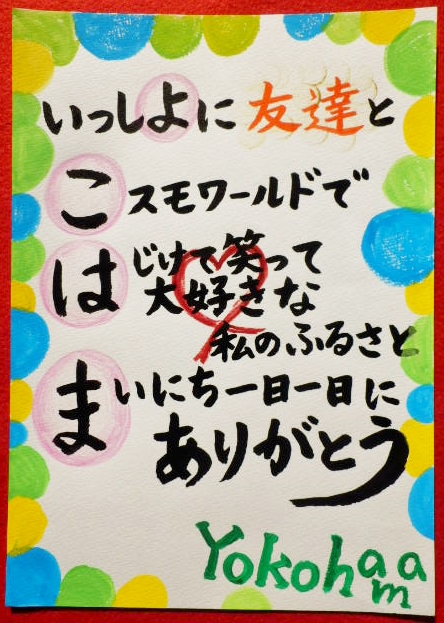 いっしよに友達と
コスモワールドで
はじけて笑って
大好きな
私のふるさと
まいにち一日一日に
ありがとう
Yokohama